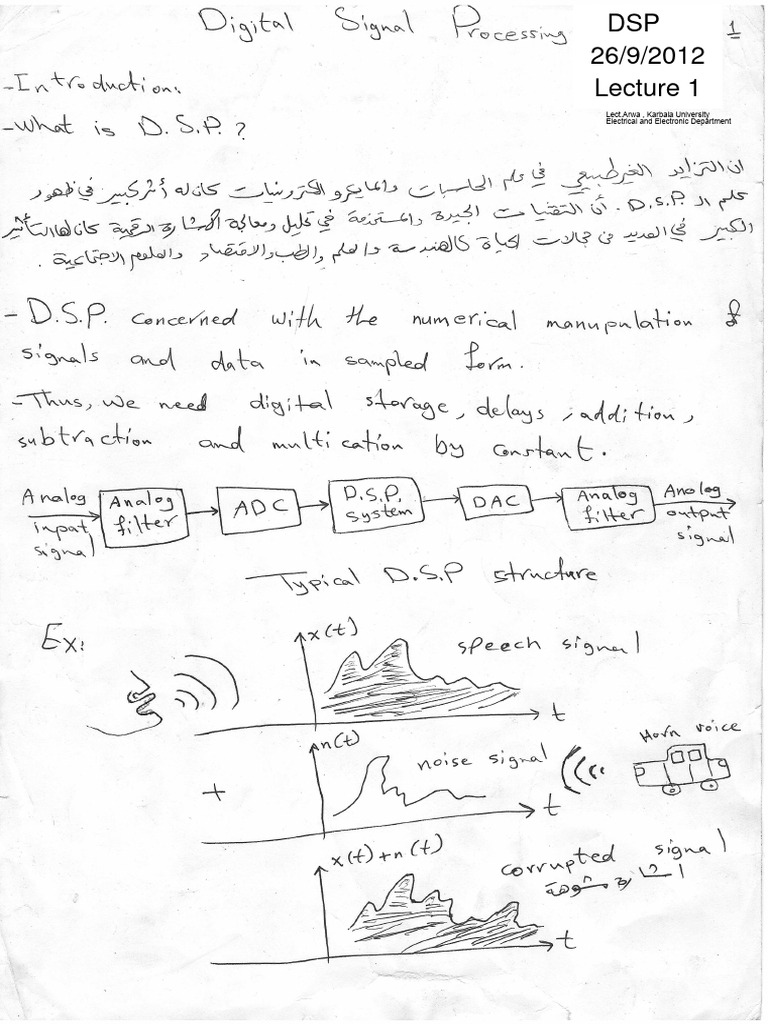 Digital Signal Processing
DSP
26/9/2012
Lecture 1
1
Lect.Arwa , Karbala University
Electrical and Electronic Department
-Introduction:
-What is D.S.P.?
ان التزايد الغير طبيعي في علم الحاسبات والمايكرو الكترونيات كان له أثر كبير في ظهور
علم الـ D.S.P. أن التقنيات الجيدة والمستخدمة في تحليل ومعالجة الاشارة الرقمية كان لها التأثير
الكبير في العديد من مجالات الحياة كالهندسة والعلم والطب والاقتصاد والعلوم الاجتماعية.
- D.S.P. concerned with the numerical manupulation of
signals and data in sampled form.
- Thus, we need digital storage, delays, addition,
subtraction and multication by constant.
Analog input signal
Analog filter
ADC
D.S.P. system
DAC
Analog filter
Analog output signal
Typical D.S.P structure
Ex:
x(t)
speech signal
t
n(t)
noise signal
Horn voice
+
t
x(t)+n(t)
corrupted signal
اشارة مشوهة
t